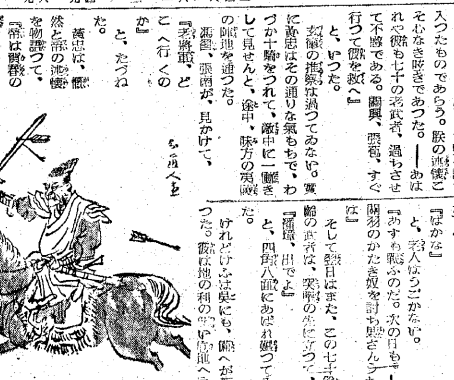 入つたものであらう。朕の述懷こ
そ心なき呟きであつた。――あは
れや彼も七十の老武者、過ちさせ
て不愍である。關興、張苞、すぐ
行つて彼を救へ』
と、いつた。
玄德の推察は過つてゐない。實
に黃忠はその通りな氣もちで、わ
づか十騎をつれて、敵中に一働き
して見せんと、途中、味方の夷陵
の陣地を通つた。
馮習、張南が、見かけて、
『老將軍、ど
こへ行くの
か』
と、たづね
た。
黃忠は、慨
然と帝の述懷
を物語つて、
『帝は
『ばかな』
と、老人はうごかない。
『あすも戰ふのだ。次の日も。――
關羽のかたき奴を討ち果さんうち
は』
そして翌日はまた、この七十
齡の武者は、の先に立つて、
『潘璋、出でよ』
と、四角八面にあばれ廻つて
た。
けれどけふは吳にも、備へが
つた。彼は地の利の危地へ